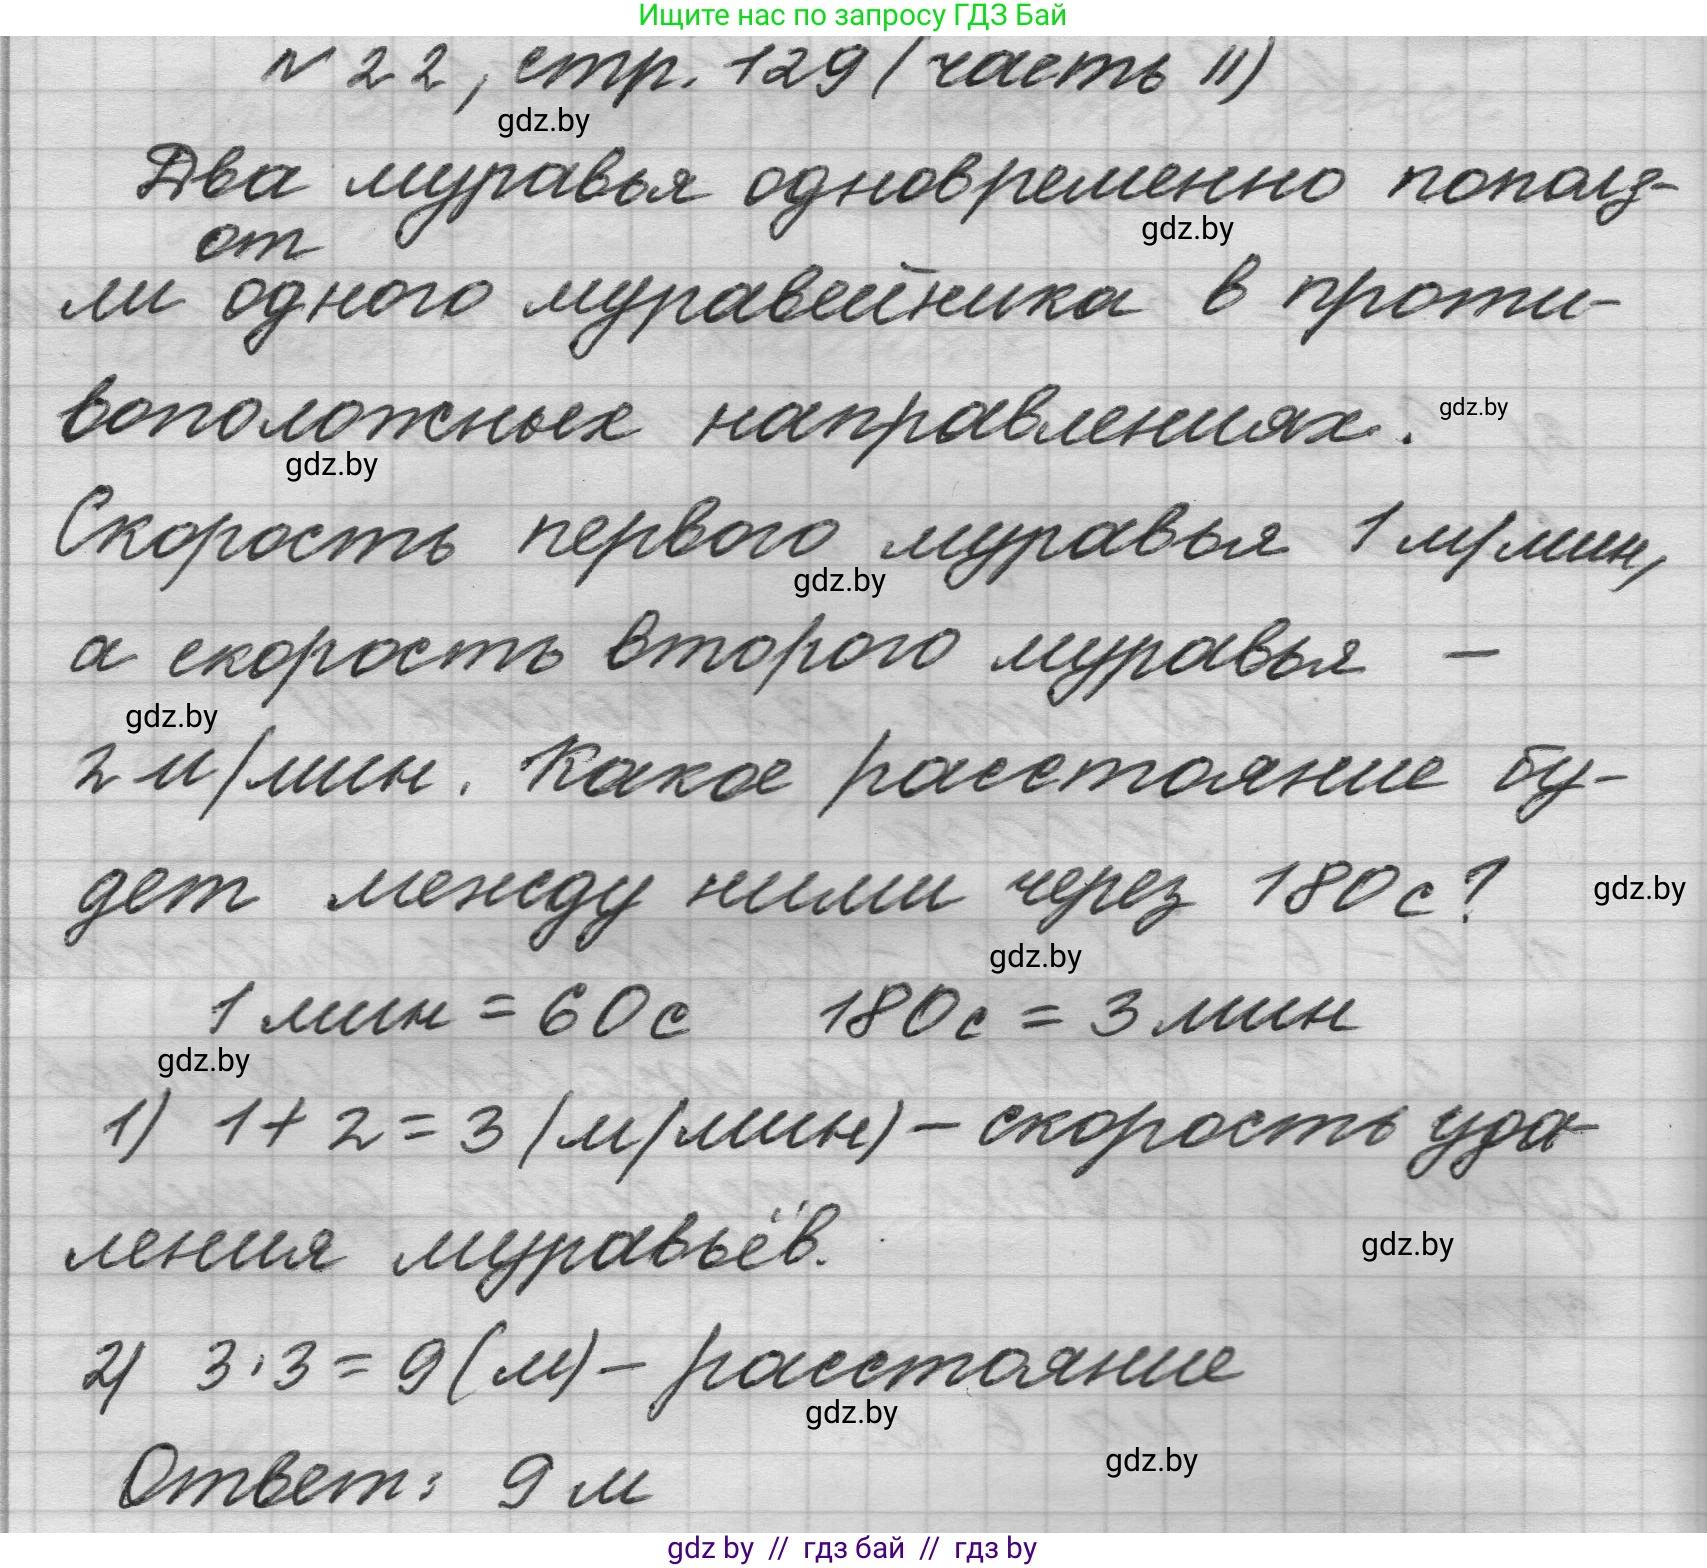 Ищите нас по запросу ГДЗ Бай
№ 22, стр. 129 (часть II)
gdz.by
Два муравья одновременно пололз-
gdz.by
от
ли одного муравейника в проти-
воположных направлениях.
gdz.by
gdz.by
Скорость первого муравья 1 м/мин,
gdz.by
а скорость второго муравья –
gdz.by
2 м/мин. Какое расстояние бу-
дет между ними через 180 с?
gdz.by
gdz.by
1 мин = 60 с 180 с = 3 мин
gdz.by
1) 1 + 2 = 3 (м/мин) – скорость уда-
ления муравьёв.
gdz.by
2) 3 · 3 = 9 (м) – расстояние
gdz.by
gdz.by
Ответ: 9 м
gdz by // гдз бай // гдз by